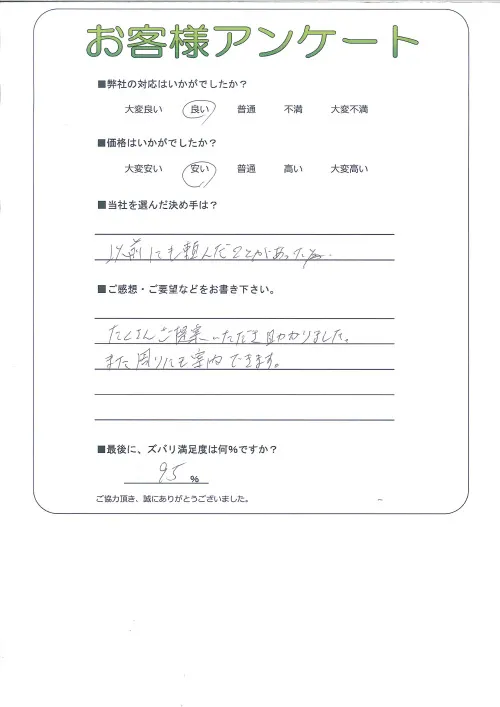 お客様アンケート
■弊社の対応はいかがでしたか？
大変良い 良い 普通 不満 大変不満
■価格はいかがでしたか？
大変安い 安い 普通 高い 大変高い
■当社を選んだ決め手は？
以前にも頼んだことがあった為.
■ご感想・ご要望などをお書き下さい。
たくさんご提案いただき助かりました。
また周りにも案内できます。
■最後に、ズバリ満足度は何%ですか？
95 %
ご協力頂き、誠にありがとうございました。